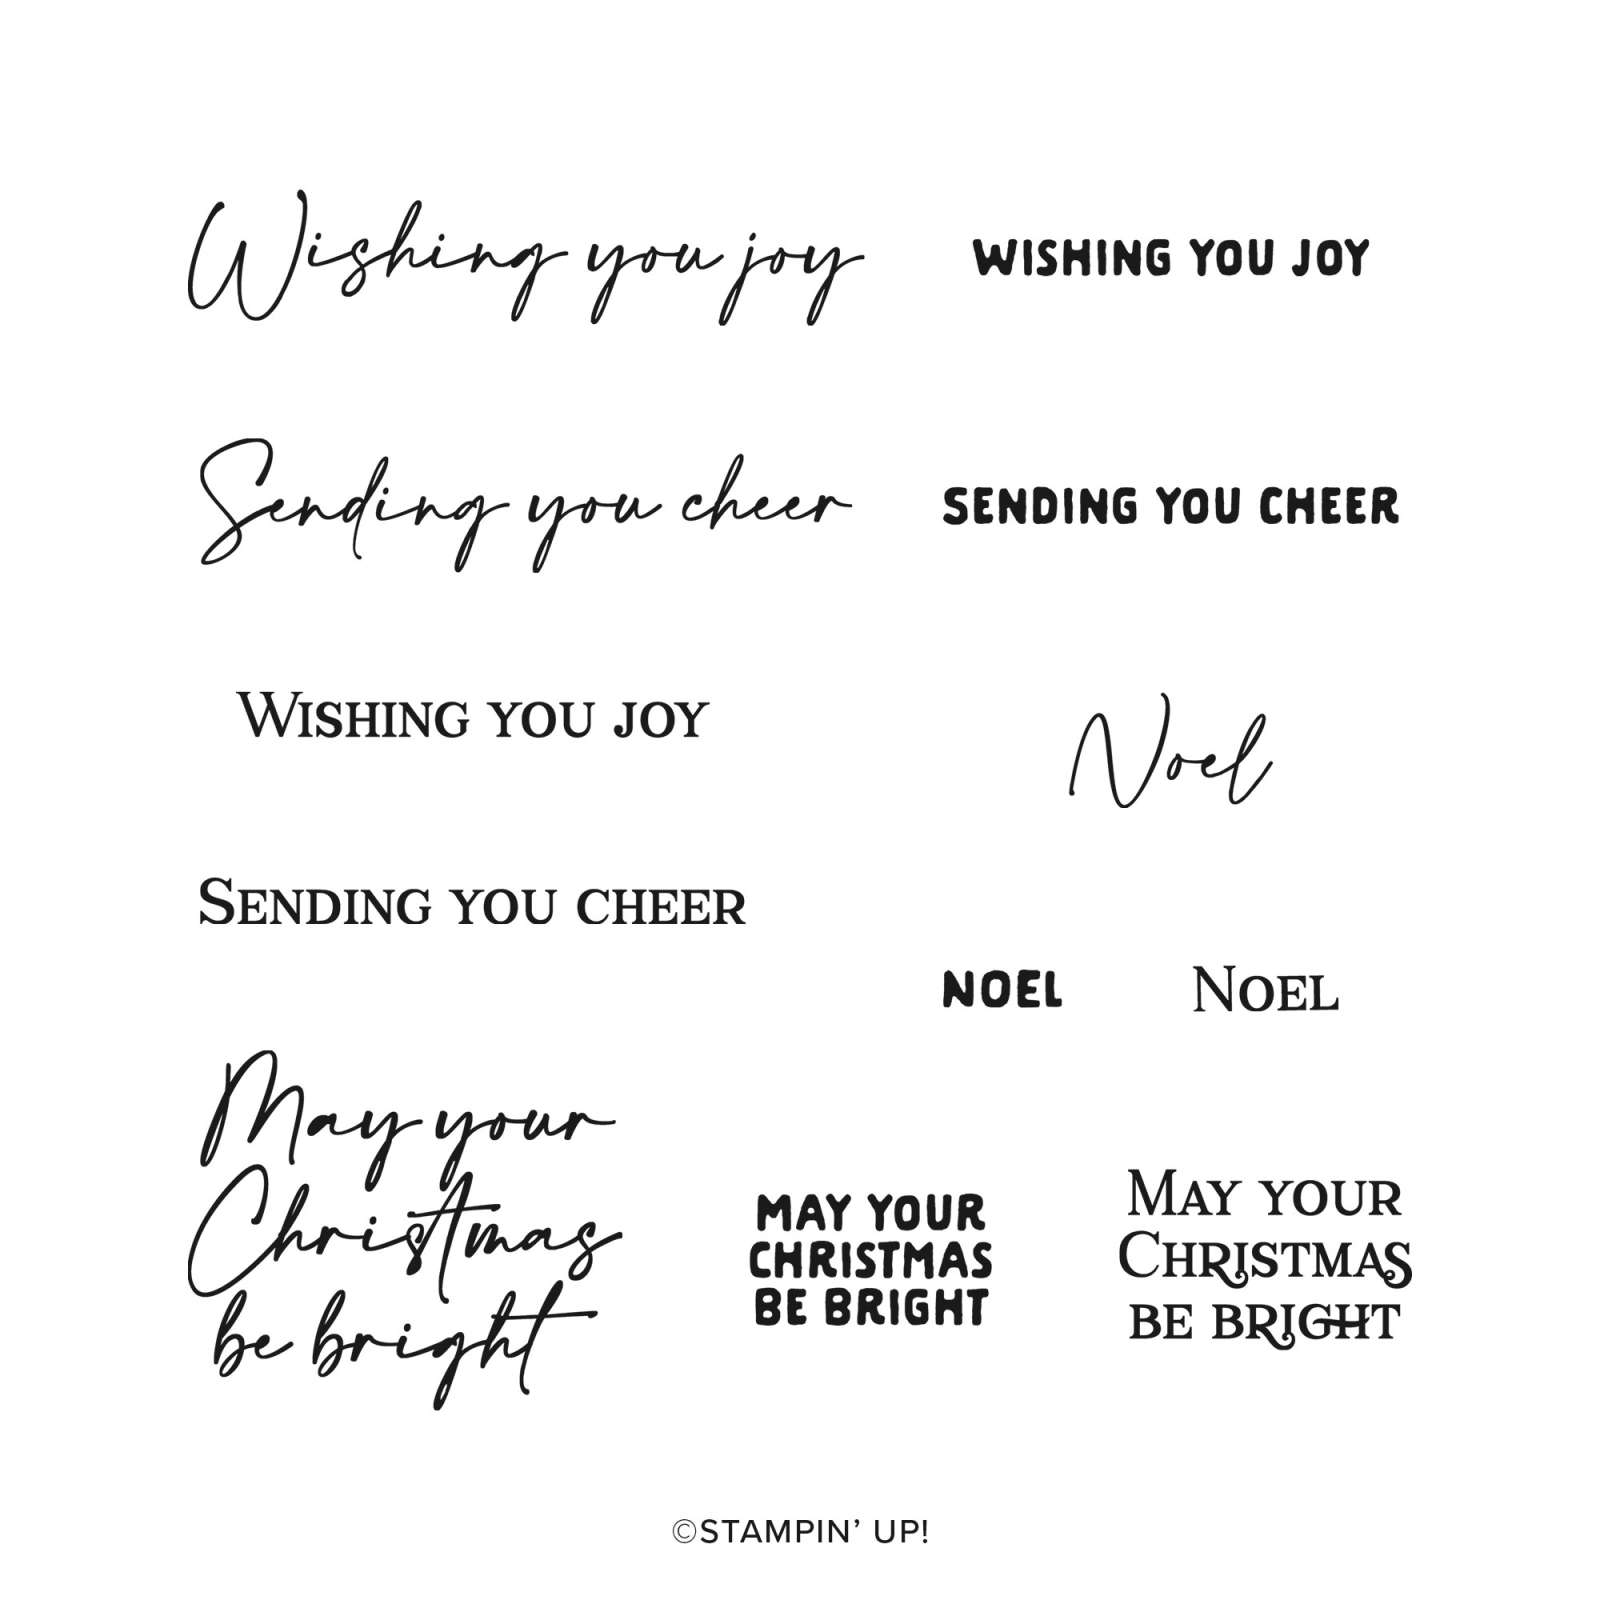 Wishing you joy
WISHING YOU JOY
Sending you cheer
SENDING YOU CHEER
Wishing you joy
Noel
Sending you cheer
NOEL
Noel
May your
Christmas
be bright
MAY YOUR
CHRISTMAS
BE BRIGHT
May your
Christmas
be bright
©STAMPIN’ UP!